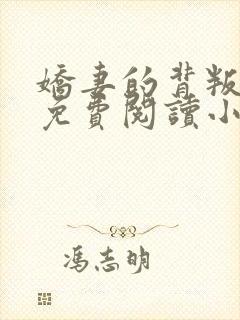 嬌妻的背叛
免費閱讀小
馮志明